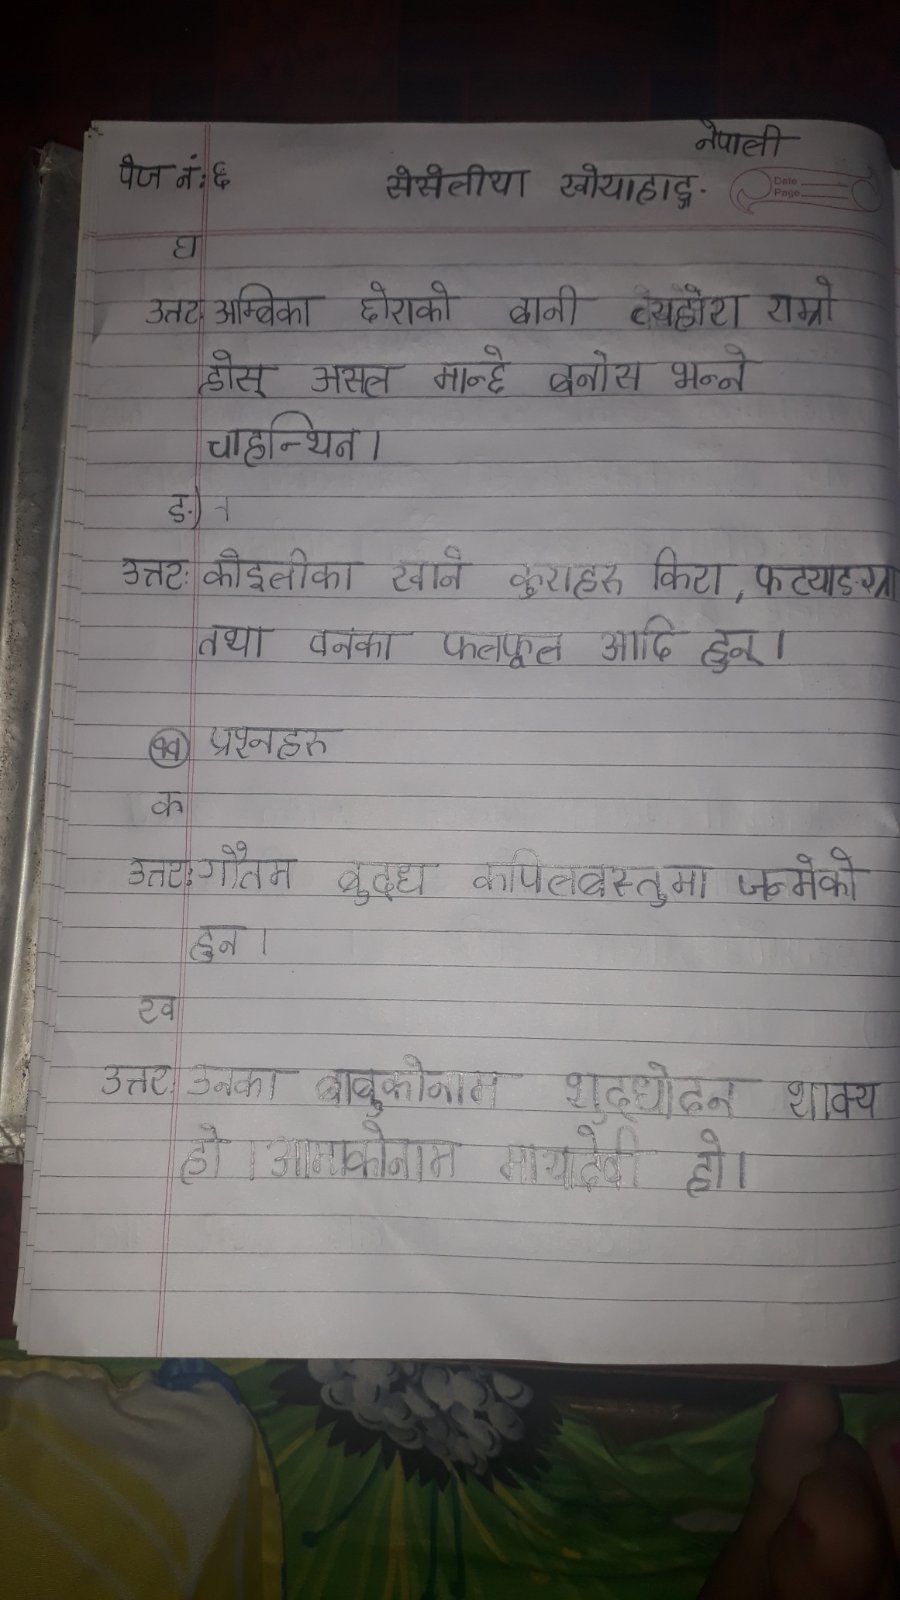 नेपाली
पेज नं:६ सेसेलीया खोयाहाङ्ग.
Date
Page
घ
उत्तर: अम्बिका छोराको बानी ब्यहोरा राम्रो
होस् असल मान्छे बनोस भन्ने
चाहन्थिन।
ङ)
उत्तर: कोइलीका खाने कुराहरु किरा, फट्याङग्रा
तथा वनका फलफूल आदि हुन्।
प्रश्नहरु
क
उत्तर: गौतम बुद्ध कपिलबस्तुमा जन्मेको
हुन।
ख
उत्तर: उनका बाबुकोनाम शुद्धोदन शाक्य
हो। आमाकोनाम मायादेवी हो।